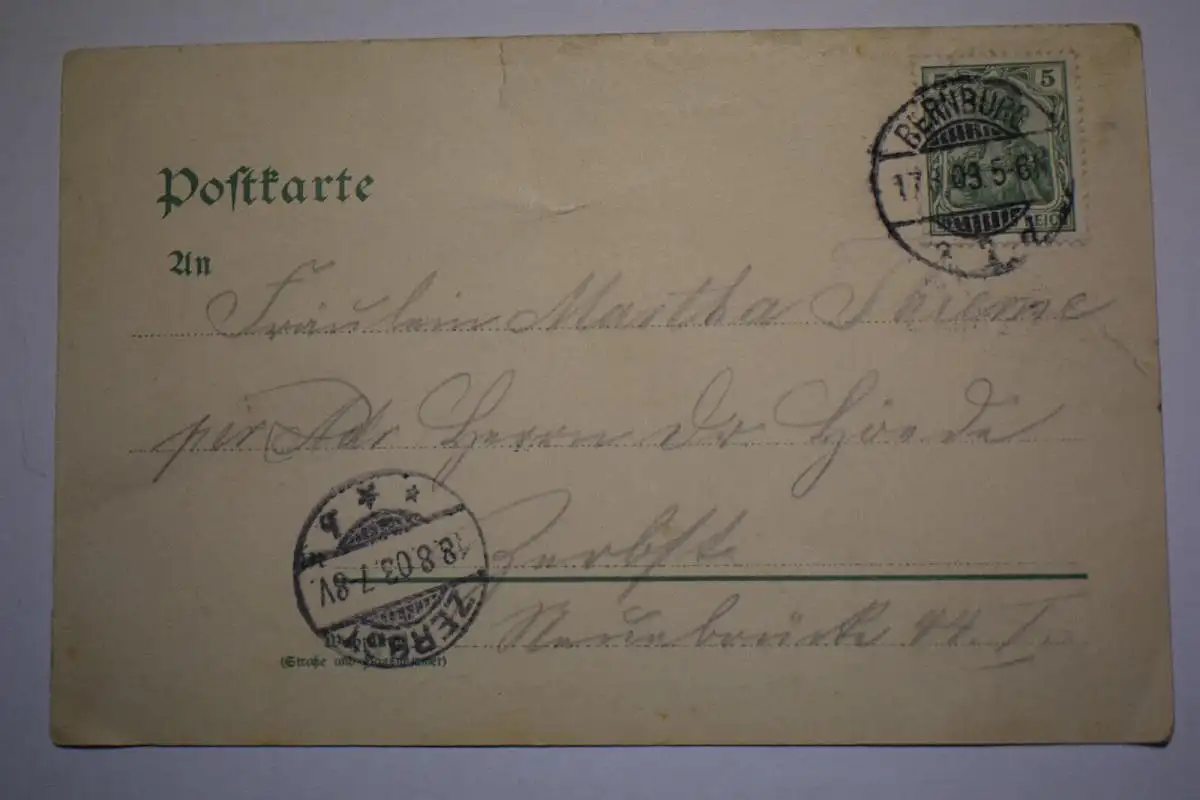 5 5
BERNBURG
17. 8. 03. 5-6N
REICH
Postkarte
An
Fräulein Martha
per Adr Herrn Dr
Zerbst
18.8.03.7-8V.
ZERBST
(Straße und Hausnummer)
Neuebrücke 44. I.